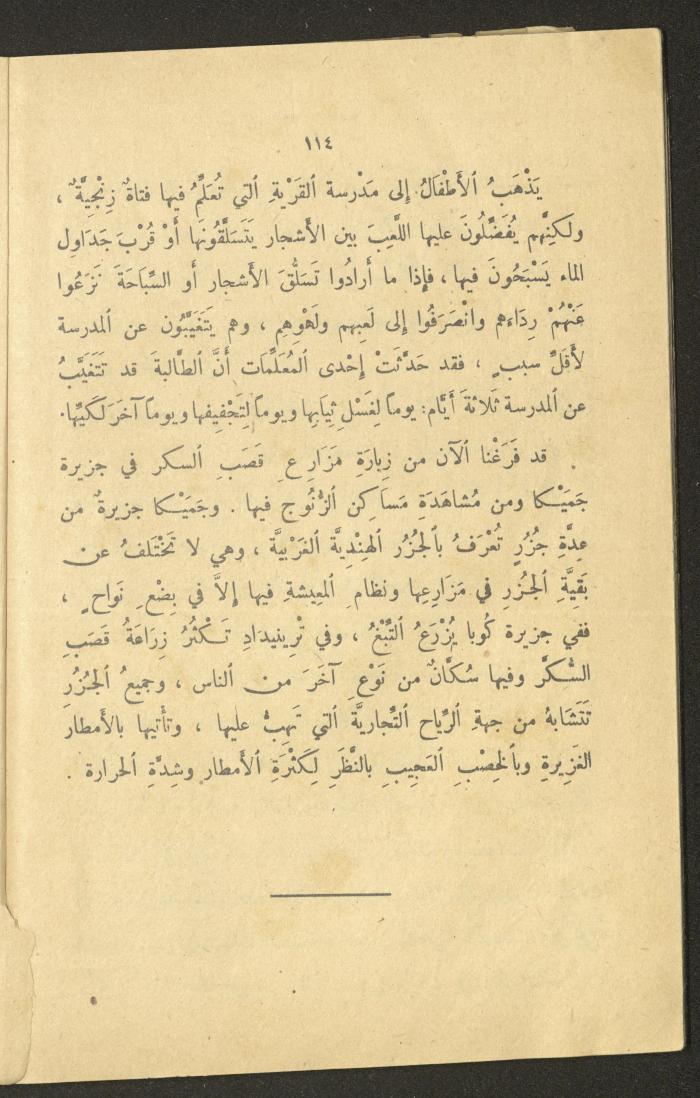 ١١٤
يَذْهَبُ ٱلأَطْفَالُ إِلى مَدْرسة ٱلقَرْيةِ ٱلتي تُعَلِّمُ فيها فتاةٌ زِنْجِيَّةٌ ،
ولكنَّهم يُفَضِّلُونَ عليها اللَّعِبَ بين الأَشجار يَتَسَلَّقُونَها أَوْ قُرْبَ جَدَاوِلِ
الماء يَسْبَحُونَ فيها ، فإِذا ما أَرادُوا تَسَلُّقَ الأَشجار أَو السِّبَاحَةَ نَزَعُوا
عَنْهُمْ رِدَاءهم وانْصَرَفُوا إلى لَعِبهم ولَهْوِهِم ، وهم يَتَغَيَّبُون عن ٱلمدرسة
لأَقلِّ سببٍ ، فقد حَدَّثَتْ إِحْدى ٱلمُعَلِّمَات أَنَّ ٱلطَّالبةَ قد تَتَغَيَّبُ
عن ٱلمدرسة ثَلاثةَ أَيَّام: يوماً لِغَسْلِ ثِيَابِها ويوماً لتجْفِيفها ويوماً آخَرَ لَكَيِّها.
قد فَرَغْنا ٱلآن من زِيارَةِ مَزَارِعِ قَصَبِ ٱلسكر في جزيرة
جَمَيْكا ومن مُشاهَدَةِ مَسَاكِن ٱلزُّنُوج فيها . وجَمَيْكا جزيرةٌ من
عِدَّةِ جُزُرٍ تُعْرَفُ بٱلجُزُر ٱلهِنْدِيَّة ٱلغَرْبيَّة ، وهي لا تَخْتَلفُ عن
بَقِيَّةِ ٱلجُزُرِ في مَزَارِعِها ونظامِ ٱلمعِيشةِ فيها إِلاَّ في بِضْعِ نَواحٍ ،
ففي جزيرة كُوبا يُزْرَعُ ٱلتِّبْغُ ، وفي تْرِينيدَادِ تَكْثُرُ زِرَاعَةُ قَصَبِ
السُّكَّر وفيها سُكَّانٌ من نَوْعٍ آخَرَ من ٱلناس ، وجميعُ ٱلجُزُرِ
تَتَشَابهُ من جهةِ ٱلرِّياح ٱلتِّجاريَّة ٱلتي تَهِبُّ عليها ، وتأتيها بالأَمطار
الغَزِيرةِ وبٱلخِصْبِ ٱلعَجِيبِ بالنَّظَرِ لِكَثْرَةِ ٱلأَمطار وشِدَّةِ ٱلحرارة .